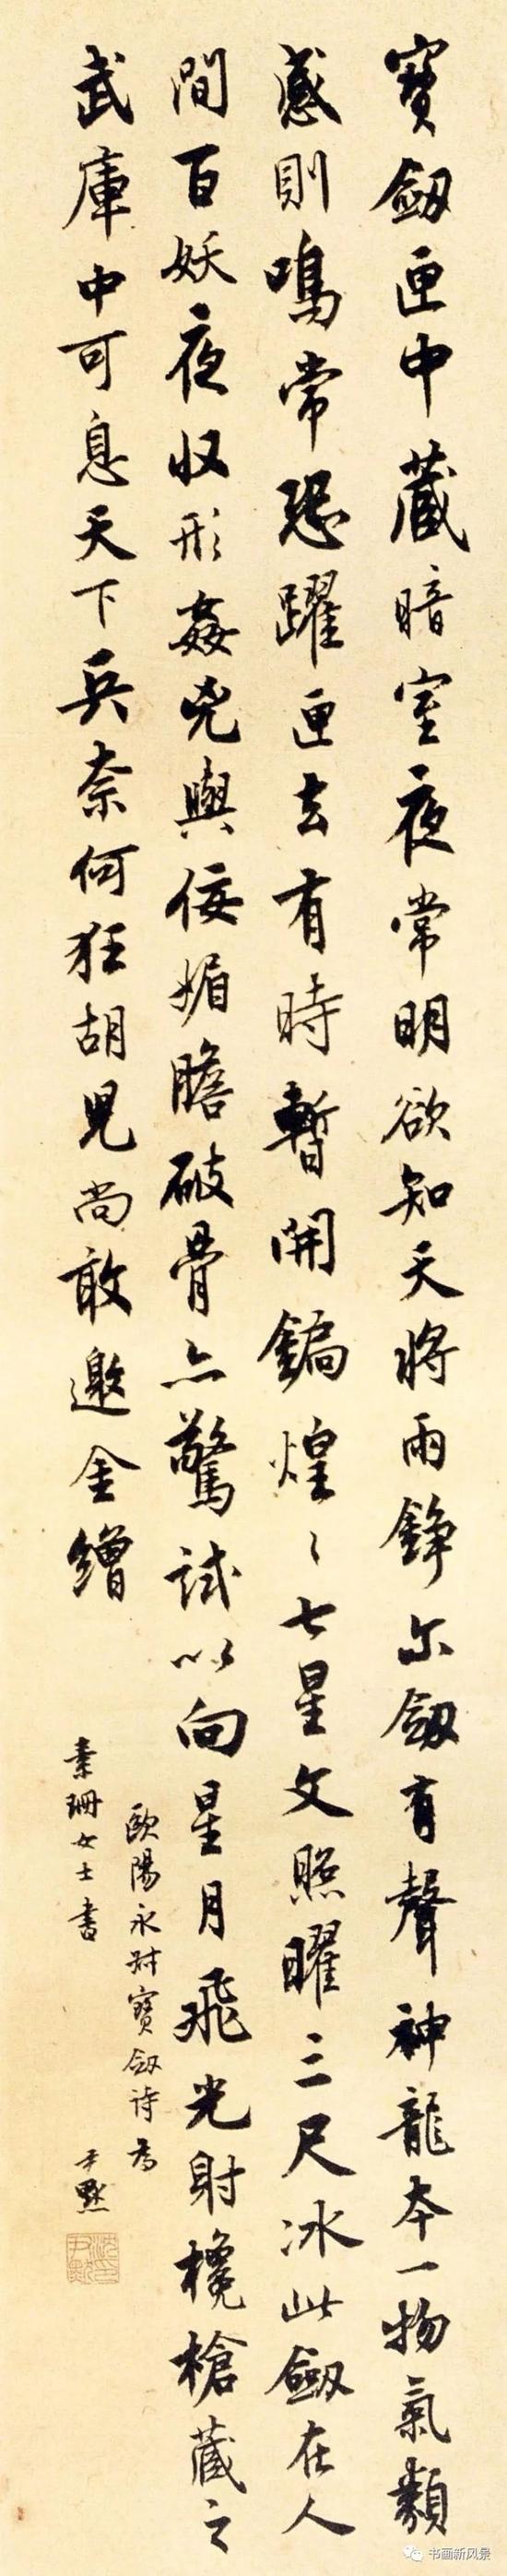 寶劔匣中藏暗室夜常明欲知天將雨錚尔劔有聲神龍本一物氣類
感則鳴常恐躍匣去有時暫開鐍煌〻七星文照曜三尺冰此劔在人
間百妖夜収形姦兇與佞媚膽破骨亦驚試以向星月飛光射欃槍藏之
武庫中可息天下兵奈何狂胡兒尚敢邀金繒
歐陽永叔寶劔詩為
素珊女士書 尹默
书画新风景